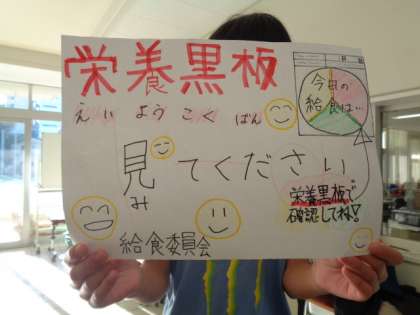 栄養黒板
えいようこくばん
今日の
給食は…
見てください
み
栄養黒板で
確認してね!
給食委員会